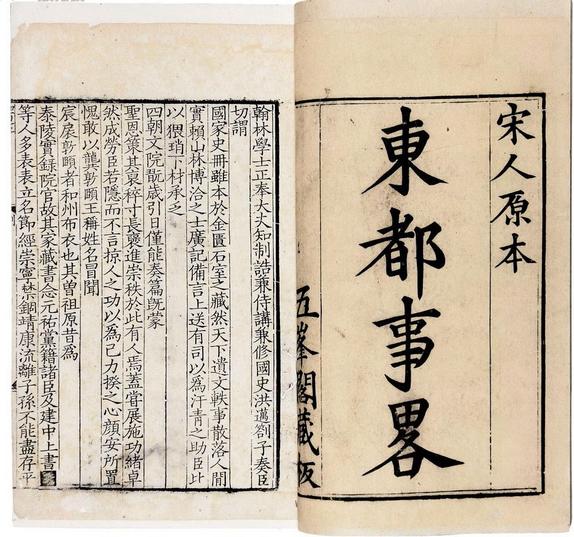 宋人原本
東都事畧
五峯閣藏板
翰林學士正奉大夫知制誥兼侍講兼修國史洪邁劄子奏臣
切謂
國家史冊雖本於金匱石室之藏然天下遺文軼事散落人間
實賴山林博洽之士廣記備言上送有司以爲汗青之助臣比
以猥瑣下材承乏
四朝文院散歲引日僅能奏篇旣蒙
聖恩策其衰稡寸長襃進崇秩於此有人焉蓋甞展施功緒卓
然成勞臣若隱而不言掠人之功以爲己力揆之心顏安所置
愧敢以龔敦頤王稱姓名冒聞
宸扆敦頤者和州布衣也其曽祖原昔爲
泰陵實録院官故其家藏書念元祐黨籍諸臣及建中上書
等人多表表立名節經崇寧禁錮靖康流離子孫不能盡存平